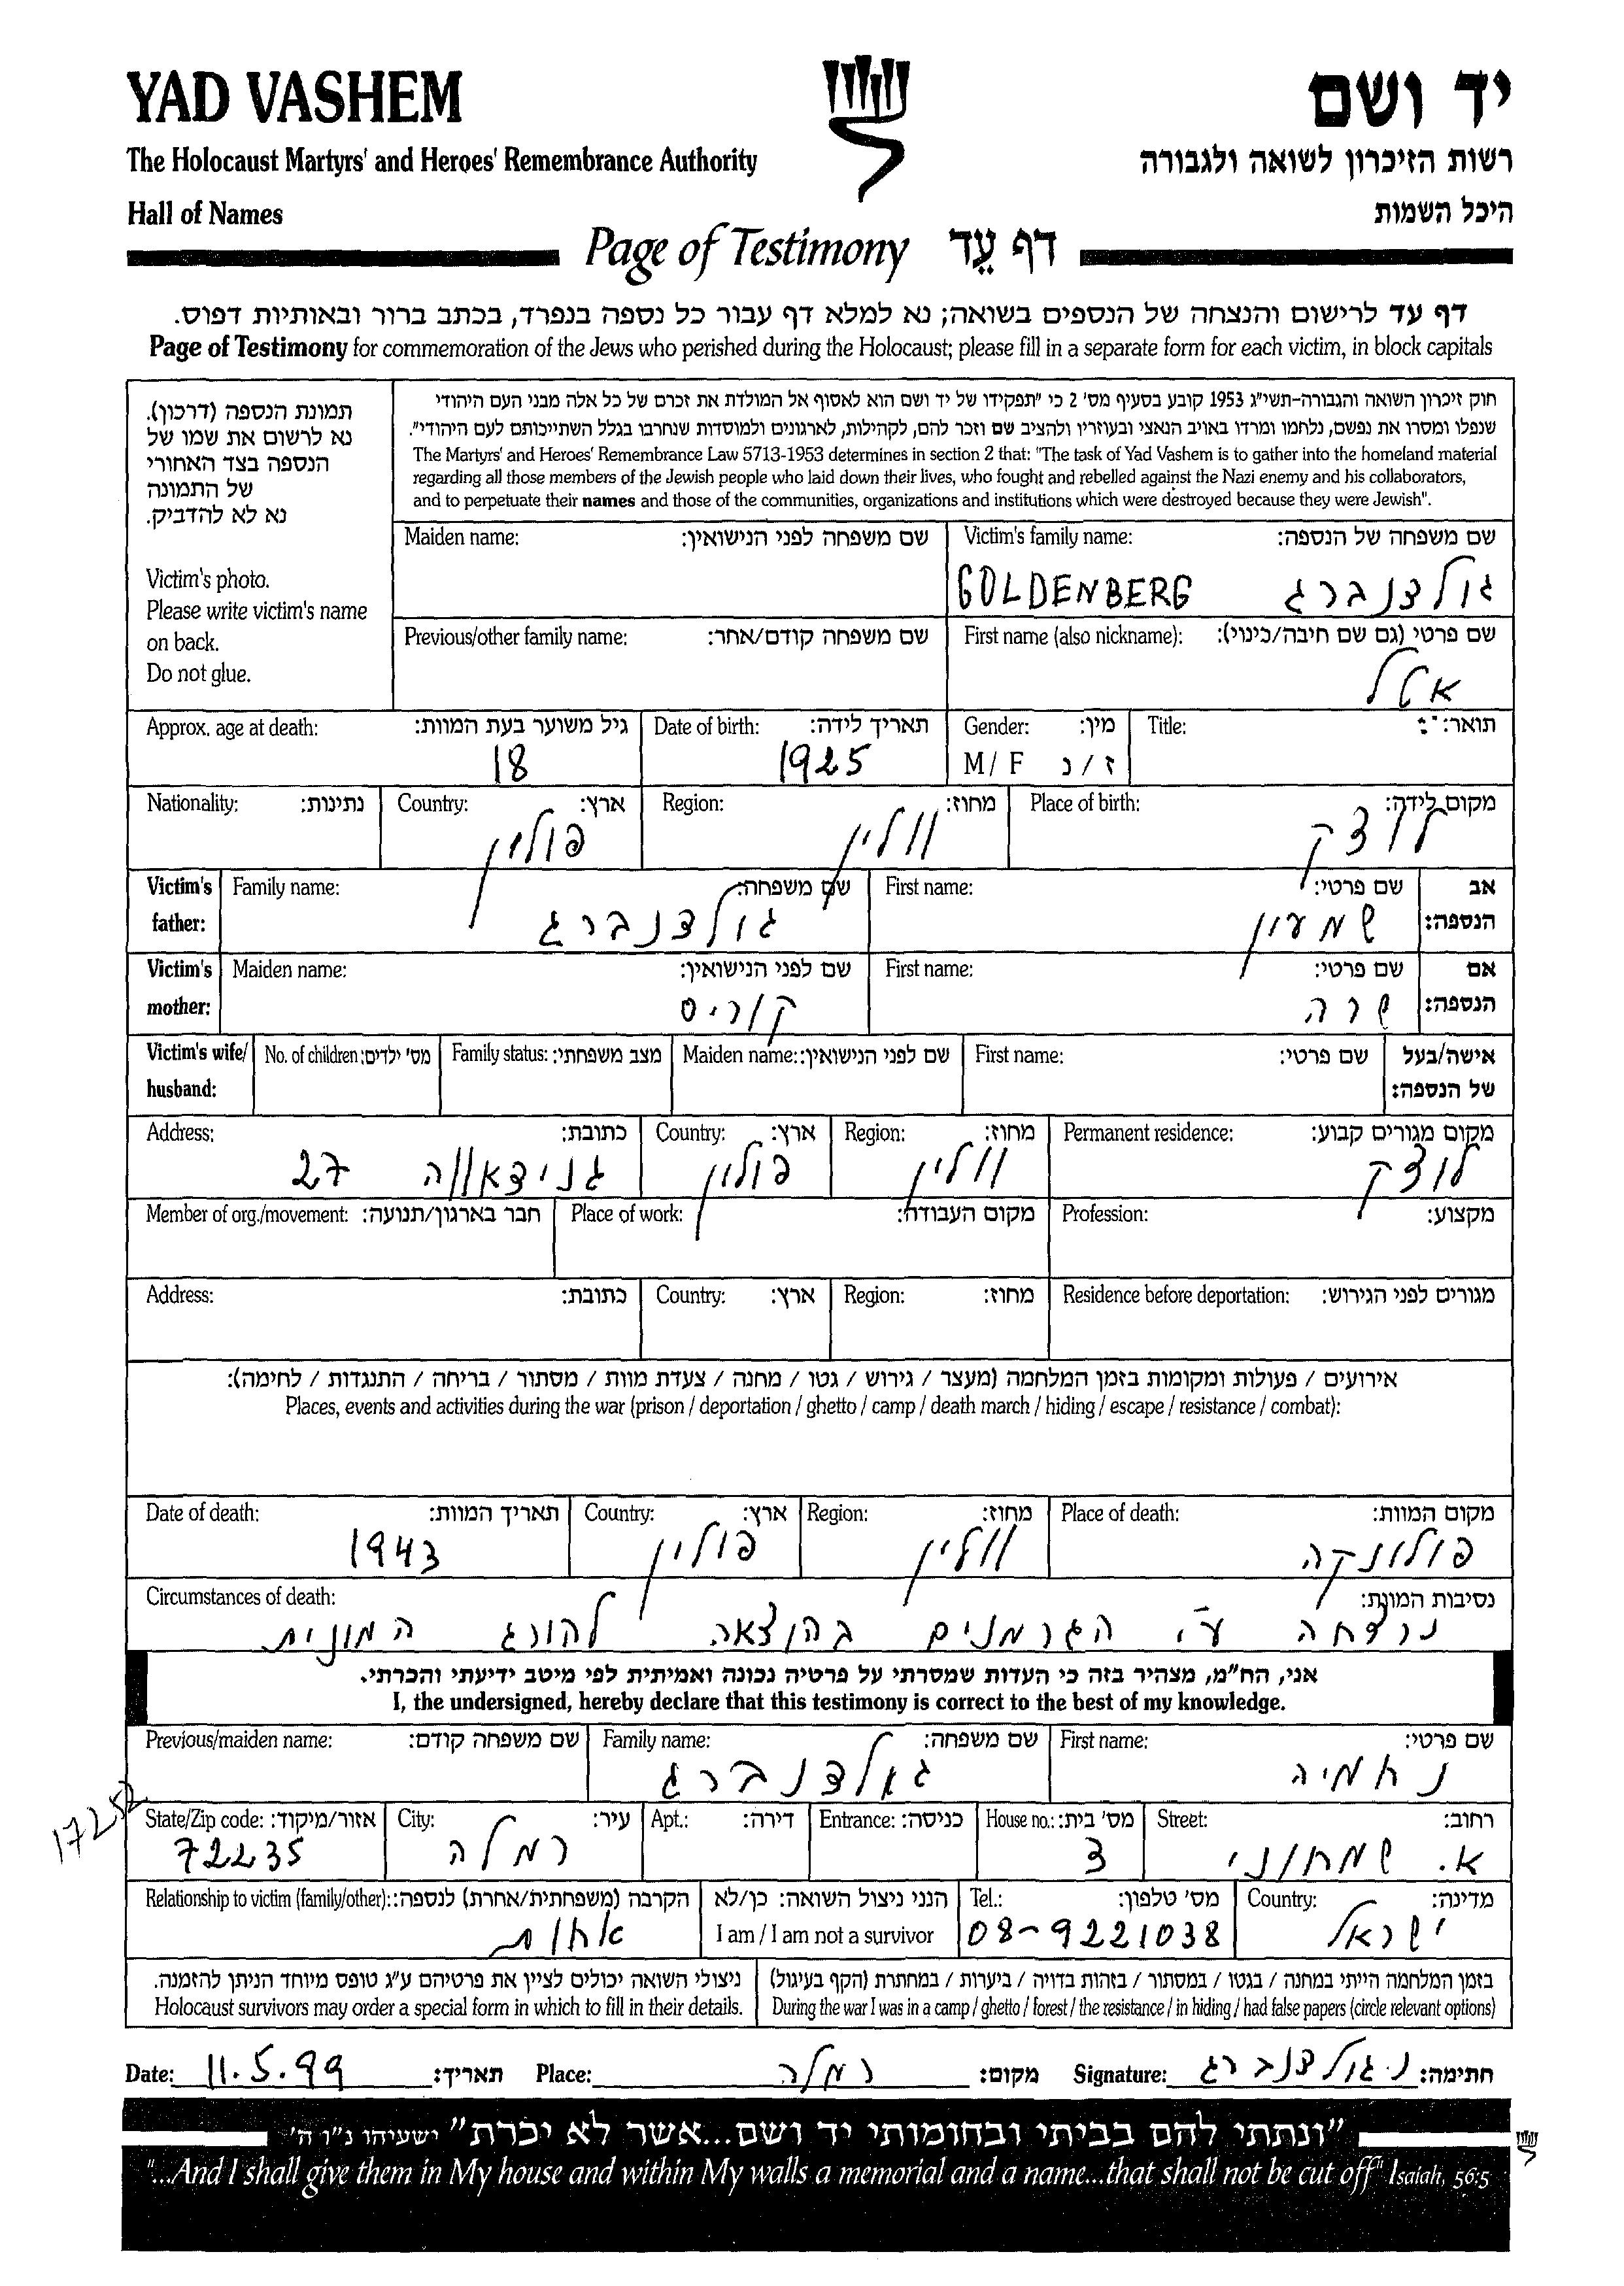 YAD VASHEM
יד ושם
The Holocaust Martyrs' and Heroes' Remembrance Authority
רשות הזיכרון לשואה ולגבורה
Hall of Names
היכל השמות
Page of Testimony דף עֵד
דף עד לרישום והנצחה של הנספים בשואה; נא למלא דף עבור כל נספה בנפרד, בכתב ברור ובאותיות דפוס.
Page of Testimony for commemoration of the Jews who perished during the Holocaust; please fill in a separate form for each victim, in block capitals
תמונת הנספה (דרכון).
נא לרשום את שמו של
הנספה בצד האחורי
של התמונה
נא לא להדביק.
Victim's photo.
Please write victim's name
on back.
Do not glue.
חוק זיכרון השואה והגבורה-תשי"ג 1953 קובע בסעיף מס' 2 כי "תפקידו של יד ושם הוא לאסוף אל המולדת את זכרם של כל אלה מבני העם היהודי
שנפלו ומסרו את נפשם, נלחמו ומרדו באויב הנאצי ובעוזריו ולהציב שם וזכר להם, לקהילות, לארגונים ולמוסדות שנחרבו בגלל השתייכותם לעם היהודי".
The Martyrs' and Heroes' Remembrance Law 5713-1953 determines in section 2 that: "The task of Yad Vashem is to gather into the homeland material
regarding all those members of the Jewish people who laid down their lives, who fought and rebelled against the Nazi enemy and his collaborators,
and to perpetuate their names and those of the communities, organizations and institutions which were destroyed because they were Jewish".
Maiden name: שם משפחה לפני הנישואין: Victim's family name: שם משפחה של הנספה:
GOLDENBERG גולדנברג
Previous/other family name: שם משפחה קודם/אחר: First name (also nickname): שם פרטי (גם שם חיבה/כינוי):
אטל
Approx. age at death: גיל משוער בעת המוות: Date of birth: תאריך לידה: Gender: מין: Title: תואר:
18 1925 M/ F ז / נ
Nationality: נתינות: Country: ארץ: Region: מחוז: Place of birth: מקום לידה:
פולין ווולין לוצק
Victim's father: Family name: שם משפחה: First name: שם פרטי: אב הנספה:
גולדנברג שמעון
Victim's mother: Maiden name: שם לפני הנישואין: First name: שם פרטי: אם הנספה:
קוריס שרה
Victim's wife/ husband: No. of children: מס' ילדים: Family status: מצב משפחתי: Maiden name: שם לפני הנישואין: First name: שם פרטי: אישה/בעל של הנספה:
Address: כתובת: Country: ארץ: Region: מחוז: Permanent residence: מקום מגורים קבוע:
גנידאווה 27 פולין ווולין לוצק
Member of org./movement: חבר בארגון/תנועה: Place of work: מקום העבודה: Profession: מקצוע:
Address: כתובת: Country: ארץ: Region: מחוז: Residence before deportation: מגורים לפני הגירוש:
אירועים / פעולות ומקומות בזמן המלחמה (מעצר / גירוש / גטו / מחנה / צעדת מוות / מסתור / בריחה / התנגדות / לחימה):
Places, events and activities during the war (prison / deportation / ghetto / camp / death march / hiding / escape / resistance / combat):
Date of death: תאריך המוות: Country: ארץ: Region: מחוז: Place of death: מקום המוות:
1943 פולין ווולין פולונקה
Circumstances of death: נסיבות המוות:
נרצחה ע"י הגרמנים בהוצאה להורג המונית
אני, הח"מ, מצהיר בזה כי העדות שמסרתי על פרטיה נכונה ואמיתית לפי מיטב ידיעתי והכרתי.
I, the undersigned, hereby declare that this testimony is correct to the best of my knowledge.
Previous/maiden name: שם משפחה קודם: Family name: שם משפחה: First name: שם פרטי:
גולדנברג נחמיה
17252
State/Zip code: אזור/מיקוד: City: עיר: Apt.: דירה: Entrance: כניסה: House no.: מס' בית: Street: רחוב:
72235 רמלה 3 א. שמחוני
Relationship to victim (family/other): הקרבה (משפחתית/אחרת) לנספה: הנני ניצול השואה: כן/לא Tel.: מס' טלפון: Country: מדינה:
אחות I am / I am not a survivor 08-9221038 ישראל
ניצולי השואה יכולים לציין את פרטיהם ע"ג טופס מיוחד הניתן להזמנה.
Holocaust survivors may order a special form in which to fill in their details.
בזמן המלחמה הייתי במחנה / בגטו / במסתור / בזהות בדויה / ביערות / במחתרת (הקף בעיגול)
During the war I was in a camp / ghetto / forest / the resistance / in hiding / had false papers (circle relevant options)
Date: 11.5.99 תאריך: Place: רמלה מקום: Signature: נ. גולדנברג חתימה:
"ונתתי להם בביתי ובחומותי יד ושם...אשר לא יכרת" ישעיהו נ"ו ה'
"...And I shall give them in My house and within My walls a memorial and a name...that shall not be cut off" Isaiah, 56:5